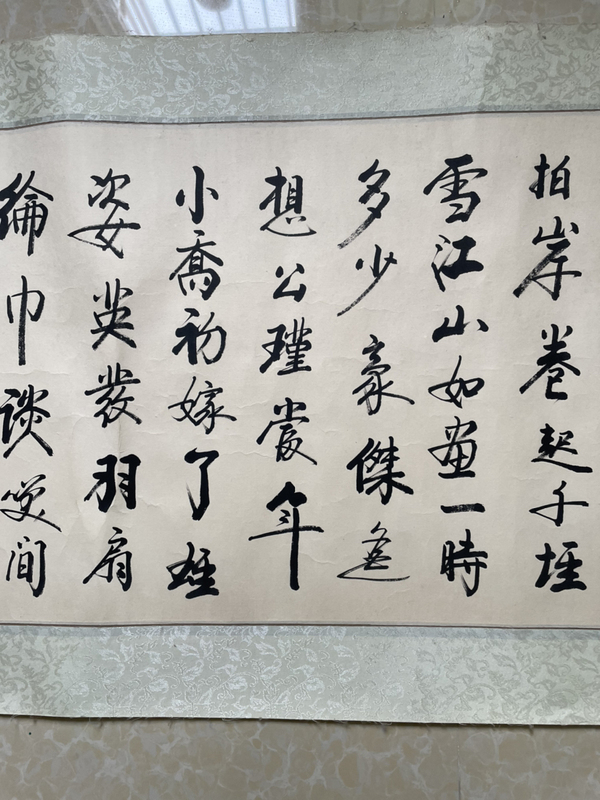 拍岸卷起千堆
雪江山如畫一時
多少豪傑遙
想公瑾當年
小喬初嫁了雄
姿英發羽扇
綸巾談笑間